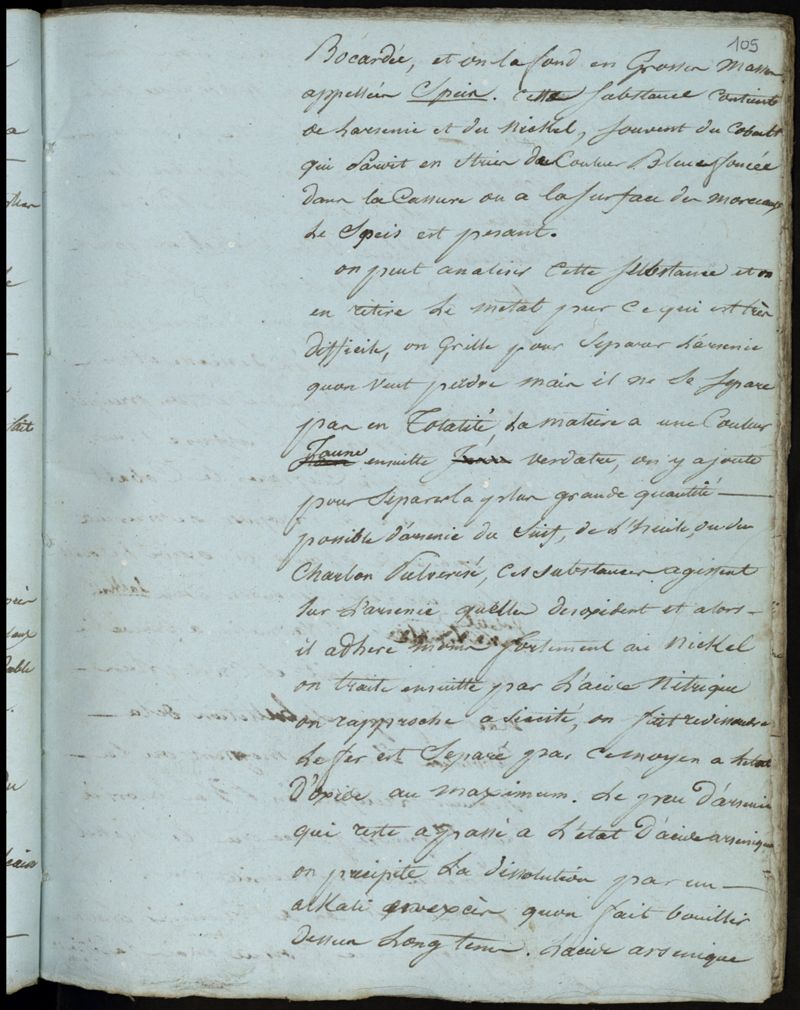 105
Bocardée, et on la fond en Grosses Masses
appellées Speis. cette substance contient
de Larsenic et du Nickel, souvent du Cobalt
qui Parait en stries de Couleur Bleue foncée
dans la Cassure ou a la surface des morceaux
Le Speis est pesant.
on peut analiser cette substance et on
en retire Le metal pur ce qui est très
difficile, on Grille pour separer L'arsenic
quon veut perdre mais il ne se separe
pas en Totalité, La matiere a une Couleur
Jaune ensuitte verdatre, on y ajoute
pour separer la plus grande quantité
possible d'arsenic du Suif, de L'huile, ou du
Charbon Pulverisé, ces substances agissent
sur L'arsenic quelles desoxident et alors
il adhere moins fortement au Nickel
on traite ensuitte par L'acide Nitrique
on rapproche a siccité, on fait redissoudre
Le fer est Separé par ce moyen a Letat
D'oxide au maximum. Le peu D'arsenic
qui reste a passé a L'etat D'acide arsenique
on precipite La dissolution par un
alkali en excès quon fait bouillir
dessus Longtems. L'acide arsenique